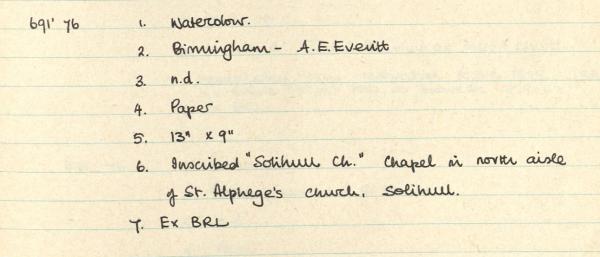 691' 76 1. Watercolour.
2. Birmingham - A.E. Everitt
3. n.d.
4. Paper
5. 13" x 9"
6. Inscribed "Solihull Ch." Chapel in north aisle
of St. Alphege's church, Solihull.
7. Ex BRL